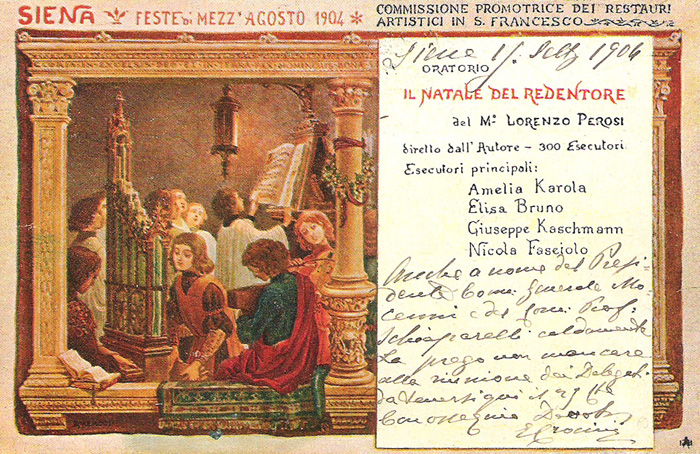 SIENA FESTE DI MEZZ'AGOSTO 1904
COMMISSIONE PROMOTRICE DEI RESTAURI
ARTISTICI IN S. FRANCESCO
Siena 15 1904
ORATORIO
IL NATALE DEL REDENTORE
del Mº LORENZO PEROSI
diretto dall'Autore - 300 Esecutori
Esecutori principali:
Amelia Karola
Elisa Bruno
Giuseppe Kaschmann
Nicola Fasciolo
Anche a nome del Presi-
dente Comm. generale Mo-
cenni e del Prof.
Schiaparelli caldamente
La prego non mancare
alla riunione dei Delegati
da tenersi qui il
Con ossequio